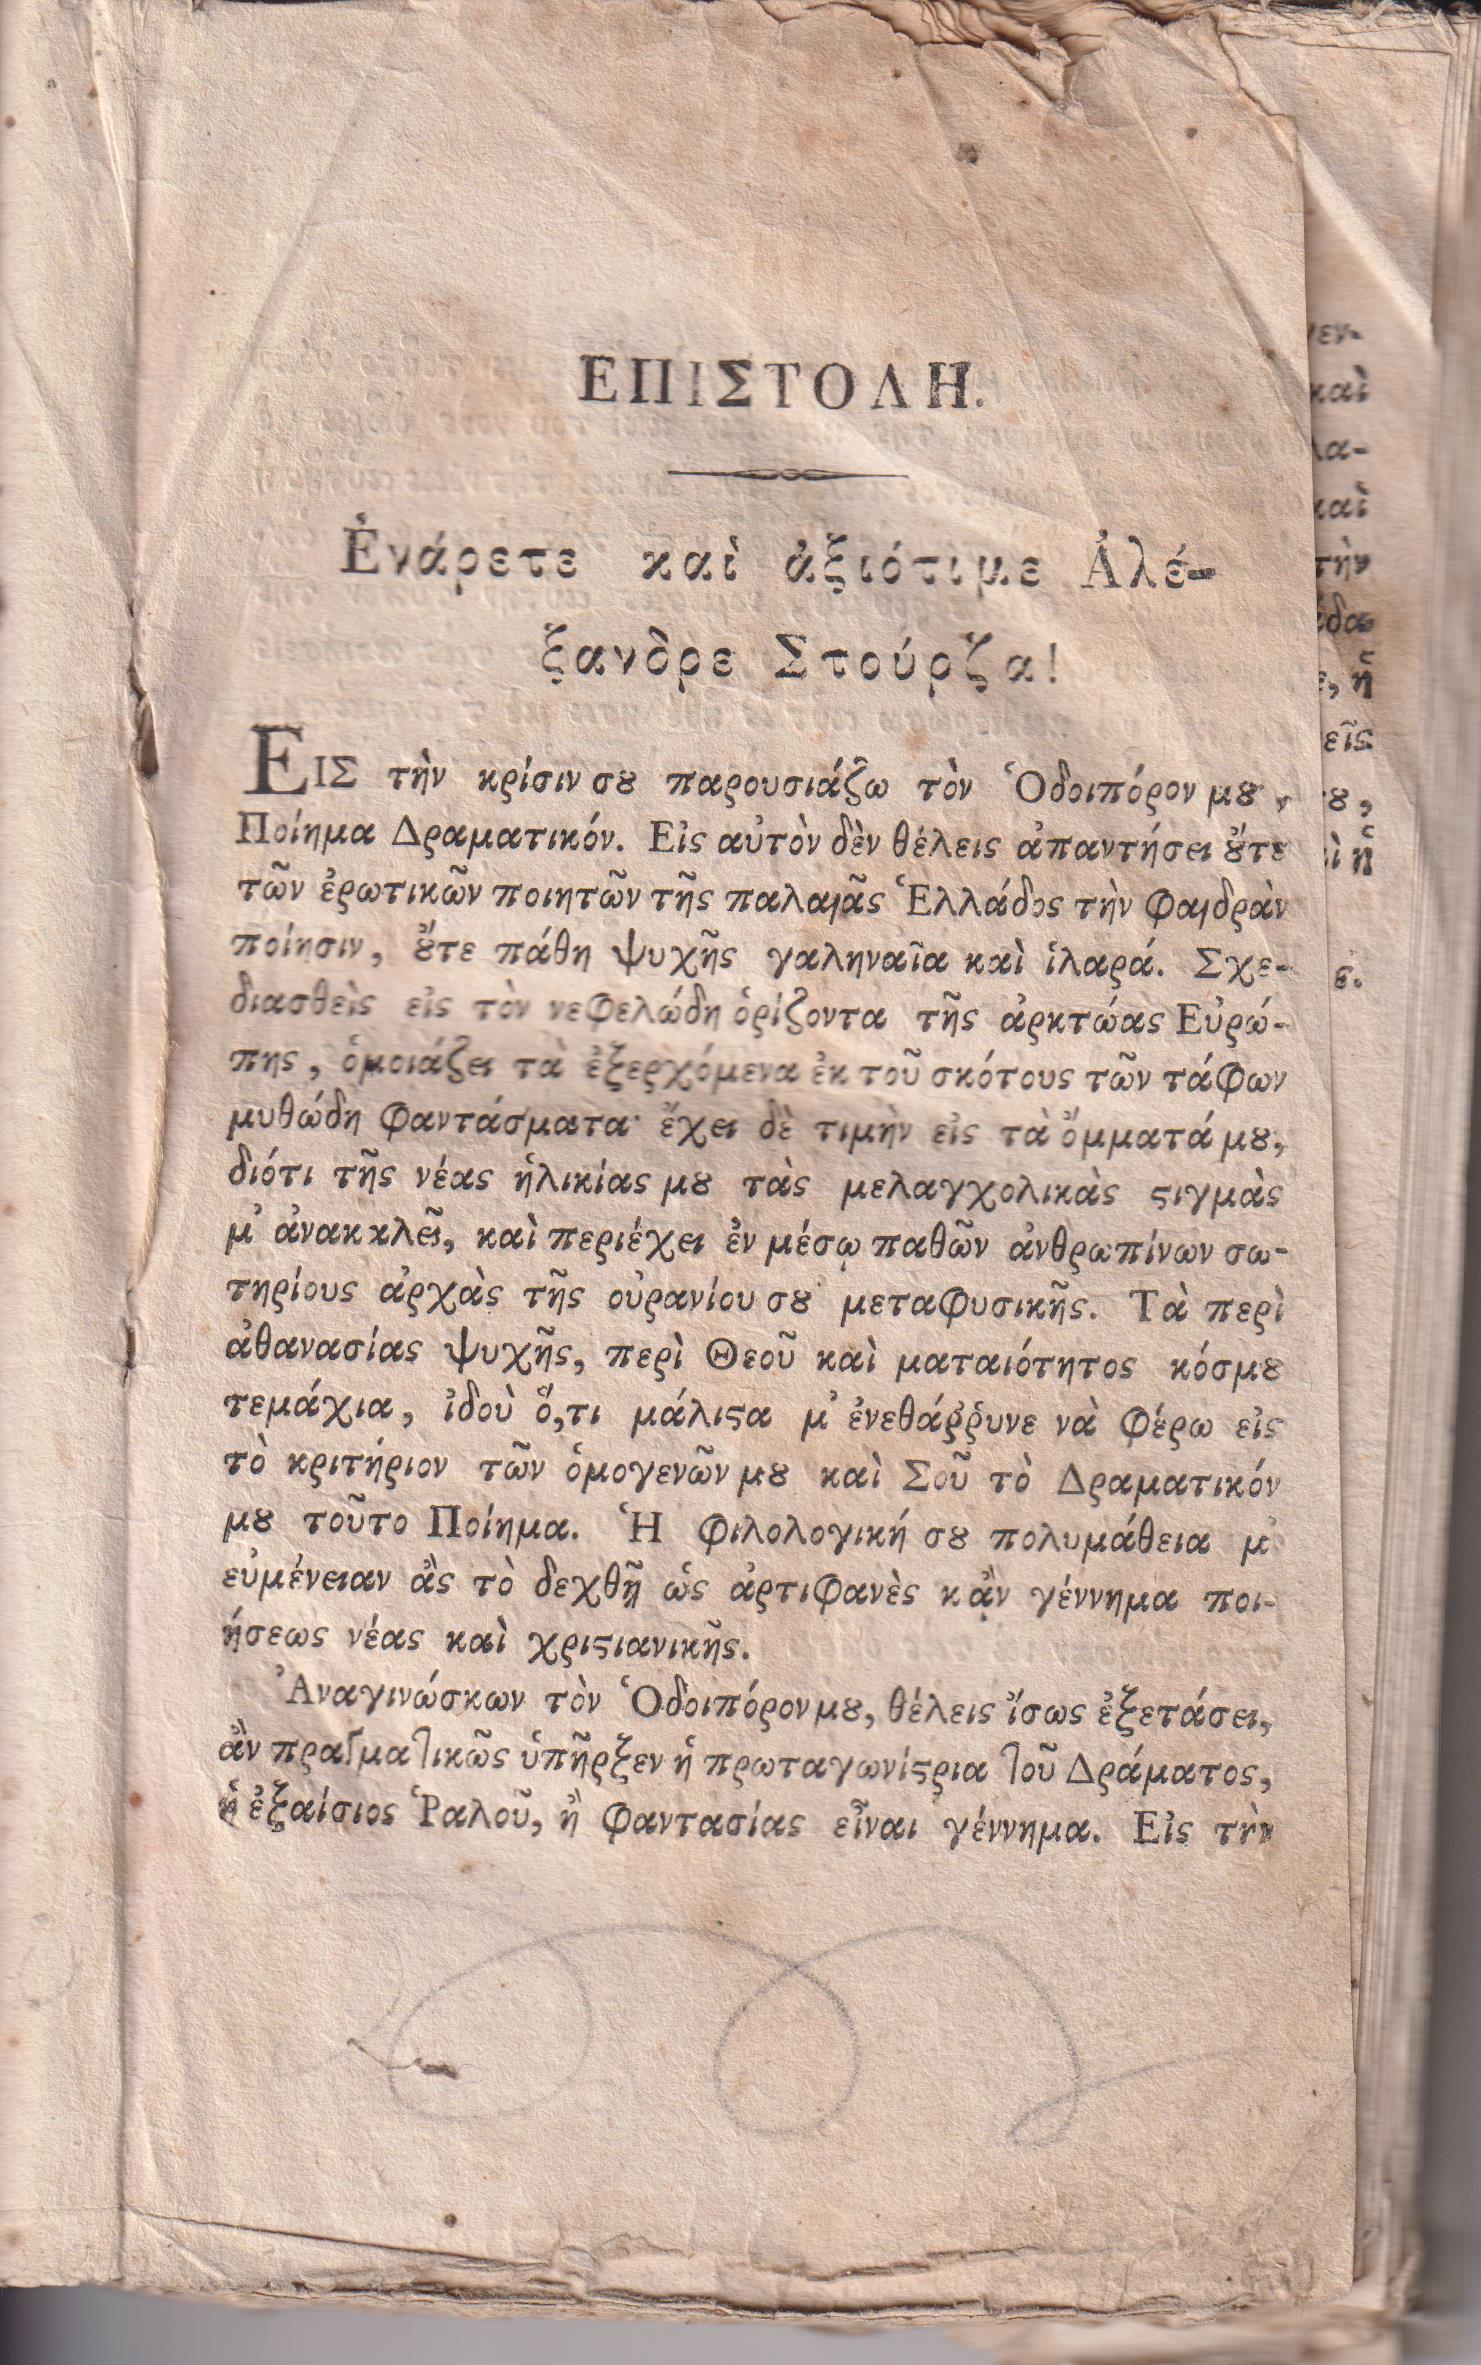 ΕΠΙΣΤΟΛΗ.
Ἐνάρετε καὶ ἀξιότιμε Ἀλέ-
ξανδρε Στούρζα!
ΕΙΣ τὴν κρίσιν σȣ παρουσιάζω τὸν Ὁδοιπόρον μȣ,
Ποίημα Δραματικόν. Εἰς αὐτὸν δὲν θέλεις ἀπαντήσει ȣ̓́τε
τῶν ἐρωτικῶν ποιητῶν τῆς παλαιᾶς Ἑλλάδος τὴν φαιδρὰν
ποίησιν, ȣ̓́τε πάθη ψυχῆς γαληναῖα καὶ ἱλαρά. Σχε-
διασθεὶς εἰς τὸν νεφελώδη ὁρίζοντα τῆς ἀρκτώας Εὐρώ-
πης, ὁμοιάζει τὰ ἐξερχόμενα ἐκ τοῦ σκότους τῶν τάφων
μυθώδη φαντάσματα· ἔχει δὲ τιμὴν εἰς τὰ ὄμματά μȣ,
διότι τῆς νέας ἡλικίας μȣ τὰς μελαγχολικὰς ϛιγμὰς
μ' ἀνακκλεῖ, καὶ περιέχει ἐν μέσῳ παθῶν ἀνθρωπίνων σω-
τηρίους ἀρχὰς τῆς οὐρανίου σȣ μεταφυσικῆς. Τὰ περὶ
ἀθανασίας ψυχῆς, περὶ Θεοῦ καὶ ματαιότητος κόσμȣ
τεμάχια, ἰδοὺ ὅ,τι μάλιϛα μ' ἐνεθάῤῥυνε νὰ φέρω εἰς
τὸ κριτήριον τῶν ὁμογενῶν μȣ καὶ Σοῦ τὸ Δραματικόν
μȣ τοῦτο Ποίημα. Ἡ φιλολογική σȣ πολυμάθεια μ'
εὐμένειαν ἂς τὸ δεχθῇ ὡς ἀρτιφανὲς κᾂν γέννημα ποι-
ήσεως νέας καὶ χριϛιανικῆς.
Ἀναγινώσκων τὸν Ὁδοιπόρον μȣ, θέλεις ἴσως ἐξετάσει,
ἂν πραγματικῶς ὑπῆρξεν ἡ πρωταγωνίϛρια τοῦ Δράματος,
ἡ ἐξαίσιος Ῥαλοῦ, ἢ φαντασίας εἶναι γέννημα. Εἰς τὴν
γεν-
καὶ
λα-
καὶ
τὴν
, ἢ
εῖς